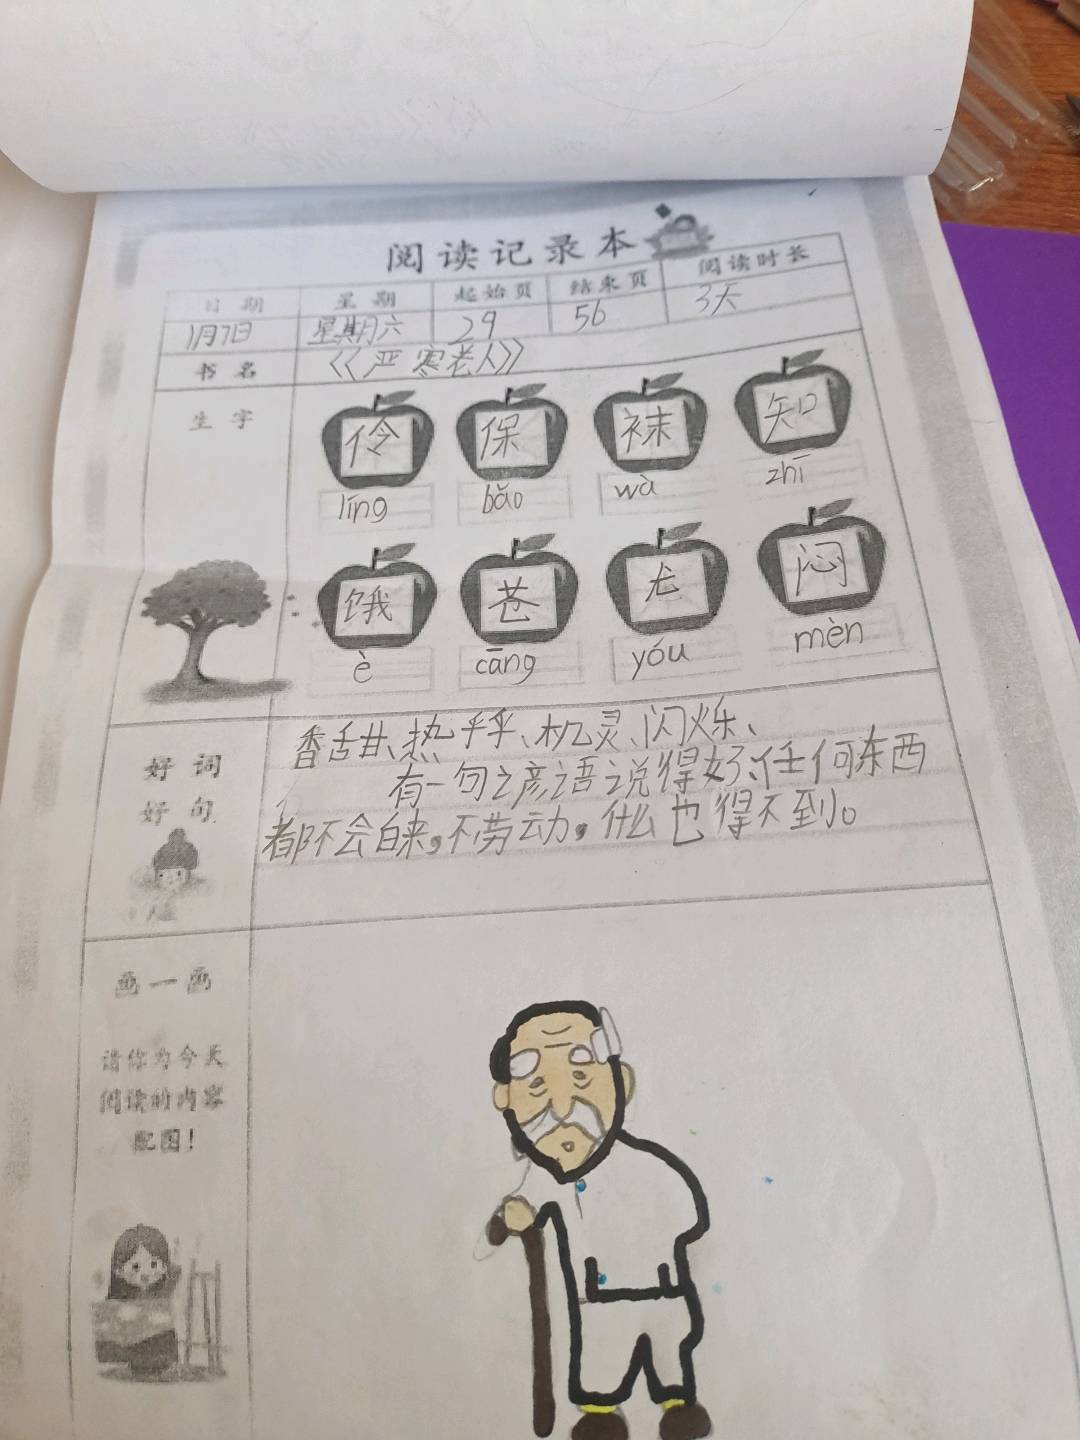 阅读记录本
日期 星期 起始页 结束页 阅读时长
1月7日 星期六 29 56 3天
书名 《严寒老人》
生字 伶 保 袜 知
líng bǎo wà zhī
饿 苍 尤 闷
è cāng yóu mèn
香甜、热乎乎、机灵、闪烁、
好词 有一句之彦语说得好、任何东西
好句 都不会白来,不劳动,什么也得不到。
画一画
请你为今天
阅读的内容
配图!